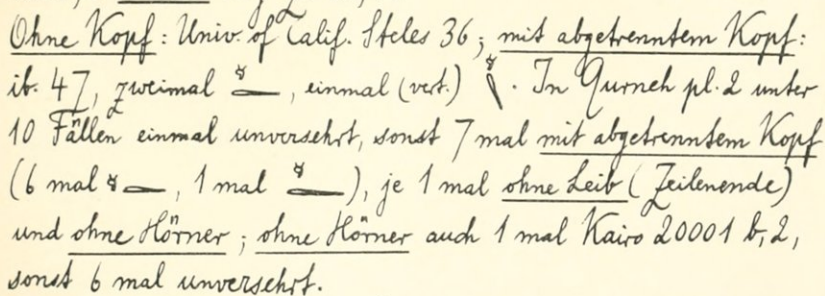 Ohne Kopf: Univ. of Calif. Steles 36; mit abgetrenntem Kopf:
ib. 47, zweimal, einmal (vert.). In Qurneh pl. 2 unter
10 Fällen einmal unversehrt, sonst 7 mal mit abgetrenntem Kopf
(6 mal, 1 mal), je 1 mal ohne Leib (Zeilenende)
und ohne Hörner; ohne Hörner auch 1 mal Kairo 20001 b, 2,
sonst 6 mal unversehrt.